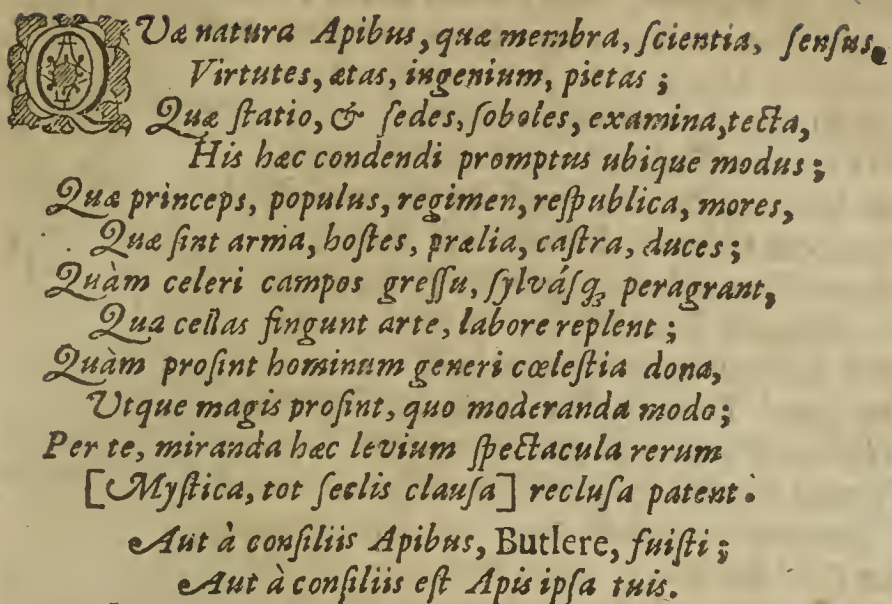 QVæ natura Apibus, quæ membra, ſcientia, ſenſus,
Virtutes, ætas, ingenium, pietas;
Quæ ſtatio, & ſedes, ſoboles, examina, tecta,
His hæc condendi promptus ubique modus;
Quæ princeps, populus, regimen, reſpublica, mores,
Quæ ſint arma, hoſtes, prælia, caſtra, duces;
Quàm celeri campos greſſu, ſylváſq; peragrant,
Qua cellas fingunt arte, labore replent;
Quàm proſint hominum generi cœleſtia dona,
Utque magis proſint, quo moderanda modo;
Per te, miranda hæc levium ſpectacula rerum
[Myſtica, tot ſeclis clauſa] recluſa patent.
Aut à conſiliis Apibus, Butlere, fuiſti;
Aut à conſiliis eſt Apis ipſa tuis.